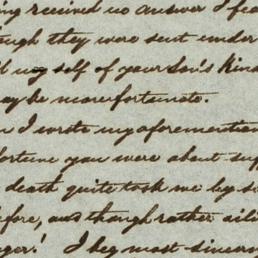 ing received no answer I fea
ough they were sent under
l my self of your Son's Kind
ay be more fortunate.
n I wrote my aforemention
fortune you were about su
death quite took me by s
efore, and though rather aili
ger! I beg most sincere